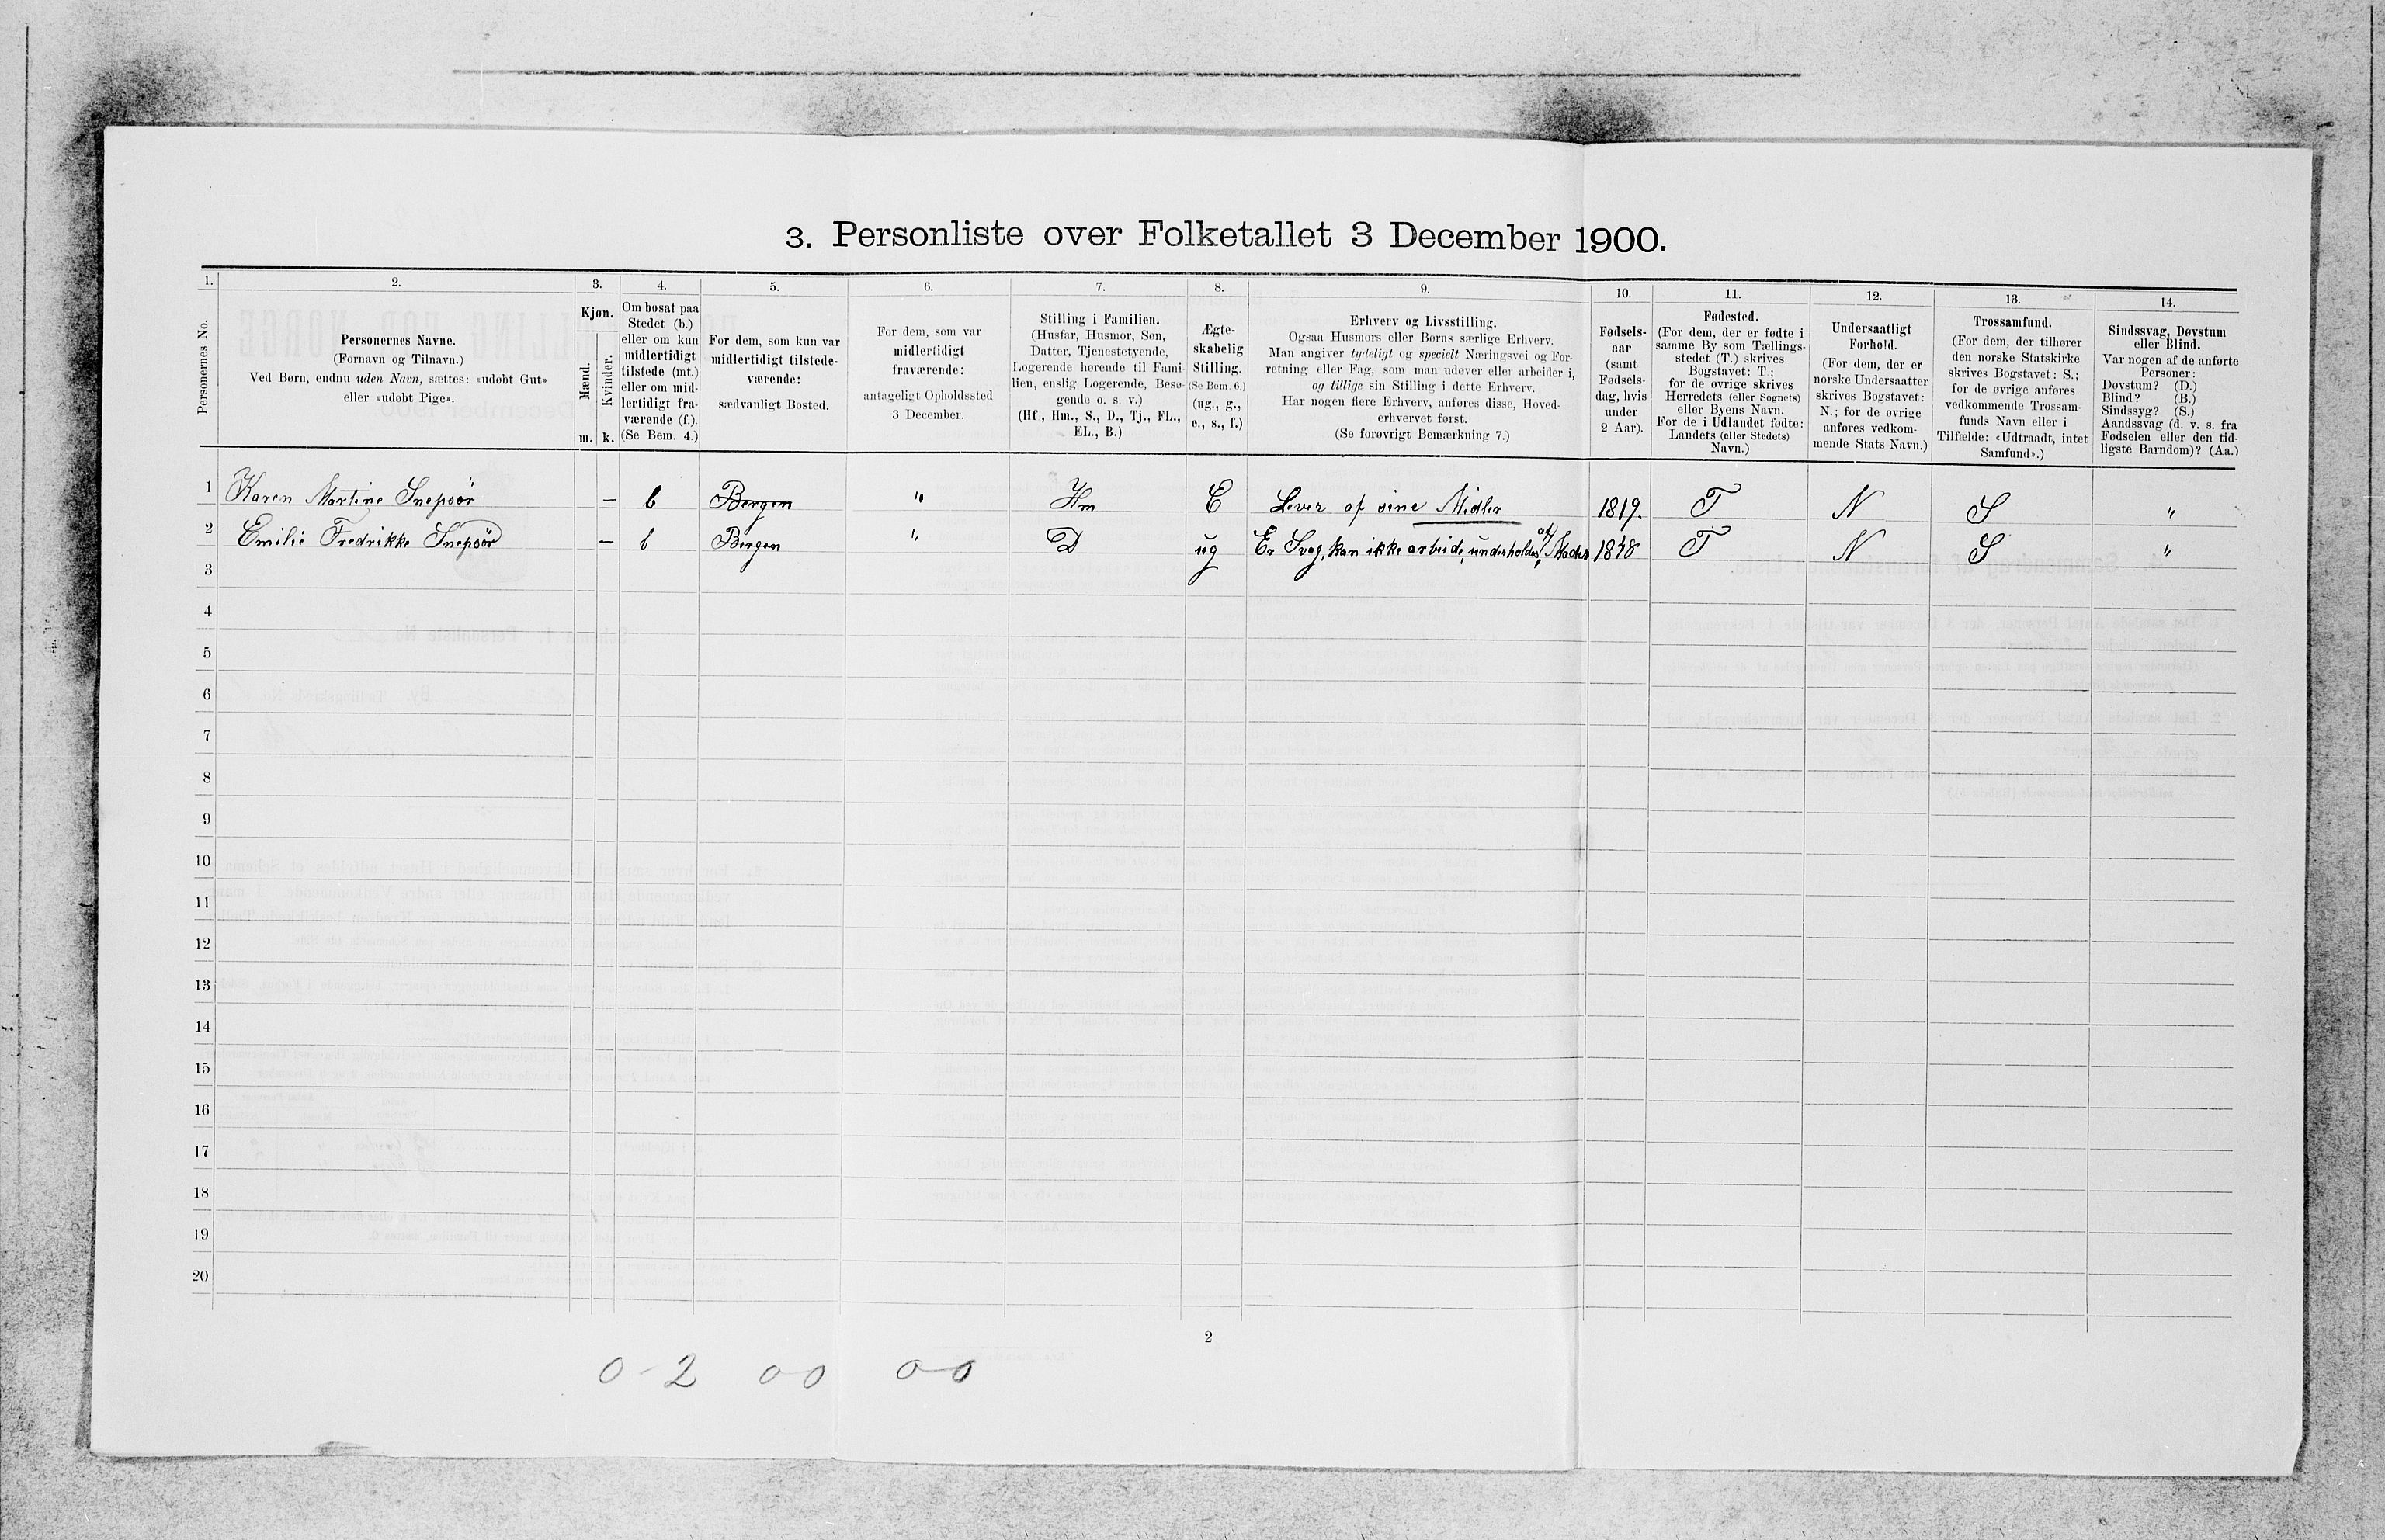 3. Personliste over Folketallet 3 December 1900.
1. 2. 3. 4. 5. 6. 7. 8. 9. 10. 11. 12. 13. 14.
Personernes No.
Personernes Navne.
(Fornavn og Tilnavn.)
Ved Børn, endnu uden Navn, sættes: «udøbt Gut»
eller «udøbt Pige».
Kjøn.
Mænd.
Kvinder.
m. k.
Om bosat paa
Stedet (b.)
eller om kun
midlertidigt
tilstede (mt.)
eller om mid-
lertidigt fra-
værende (f.).
(Se Bem. 4.)
For dem, som kun var
midlertidigt tilstede-
værende:
sædvanligt Bosted.
For dem, som var
midlertidigt
fraværende:
antageligt Opholdssted
3 December.
Stilling i Familien.
(Husfar, Husmor, Søn,
Datter, Tjenestetyende,
Logerende hørende til Fami-
lien, enslig Logerende, Besø-
gende o. s. v.)
(Hf, Hm., S., D., Tj., FL.,
EL., B.)
Ægte-
skabelig
Stilling.
(Se Bem. 6.)
(ug., g.,
e., s., f.)
Erhverv og Livsstilling.
Ogsaa Husmors eller Børns særlige Erhverv.
Man angiver tydeligt og specielt Næringsvei og For-
retning eller Fag, som man udøver eller arbeider i,
og tillige sin Stilling i dette Erhverv.
Har nogen flere Erhverv, anføres disse, Hoved-
erhvervet først.
(Se forøvrigt Bemærkning 7.)
Fødsels-
aar
(samt
Fødsels-
dag, hvis
under
2 Aar).
Fødested.
(For dem, der er fødte i
samme By som Tællings-
stedet (T.) skrives
Bogstavet: T;
for de øvrige skrives
Herredets (eller Sognets)
eller Byens Navn.
For de i Udlandet fødte:
Landets (eller Stedets)
Navn.)
Undersaatligt
Forhold.
(For dem, der er
norske Undersaatter
skrives Bogstavet:
N.; for de øvrige
anføres vedkom-
mende Stats Navn.)
Trossamfund.
(For dem, der tilhører
den norske Statskirke
skrives Bogstavet: S.;
for de øvrige anføres
vedkommende Trossam-
funds Navn eller i
Tilfælde: «Udtraadt, intet
Samfund».)
Sindssvag, Døvstum
eller Blind.
Var nogen af de anførte
Personer:
Døvstum? (D.)
Blind? (B.)
Sindssyg? (S.)
Aandssvag (d. v. s. fra
Fødselen eller den tid-
ligste Barndom)? (Aa.)
1 Karen Martine Snepsør – b Bergen " Hm E Lever af sine Midler 1819 T N S "
2 Emilie Fredrikke Snepsør – b Bergen " D ug Er Svag, kan ikke arbeide, underholdes af Moder 1848 T N S "
3
4
5
6
7
8
9
10
11
12
13
14
15
16
17
18
19
20
2
0-2 00 0-0